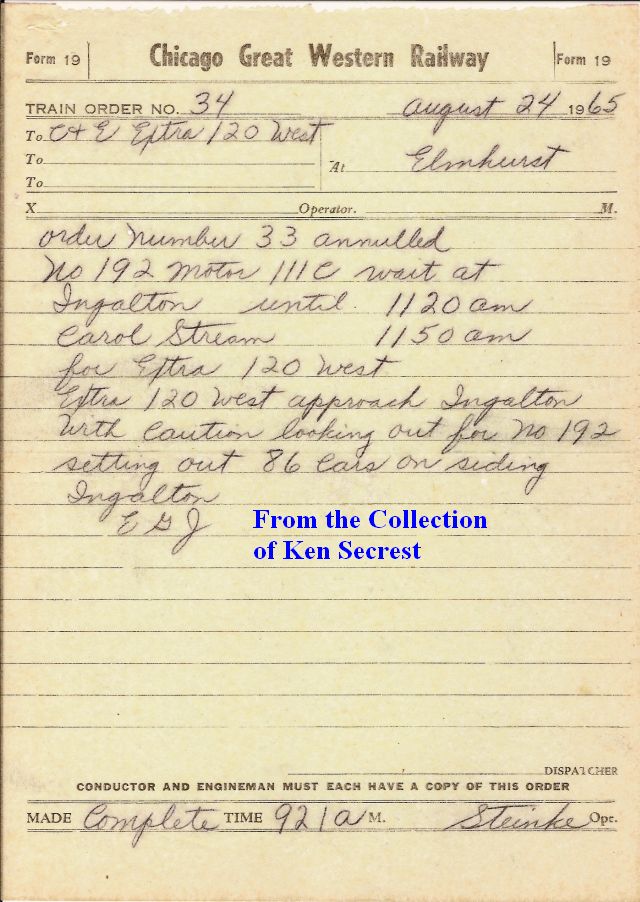 Form 19 Chicago Great Western Railway Form 19
TRAIN ORDER NO. 34 August 24 1965
To C+E Extra 120 West
To At Elmhurst
To
X Operator. M.
order number 33 annulled
No 192 motor 111C wait at
Ingalton until 1120 am
Carol Stream 1150 am
for Extra 120 West
Extra 120 West approach Ingalton
With caution looking out for No 192
setting out 86 cars on siding
Ingalton
E G J
From the Collection
of Ken Secrest
DISPATCHER
CONDUCTOR AND ENGINEMAN MUST EACH HAVE A COPY OF THIS ORDER
MADE Complete TIME 921a M. Steinke Opr.